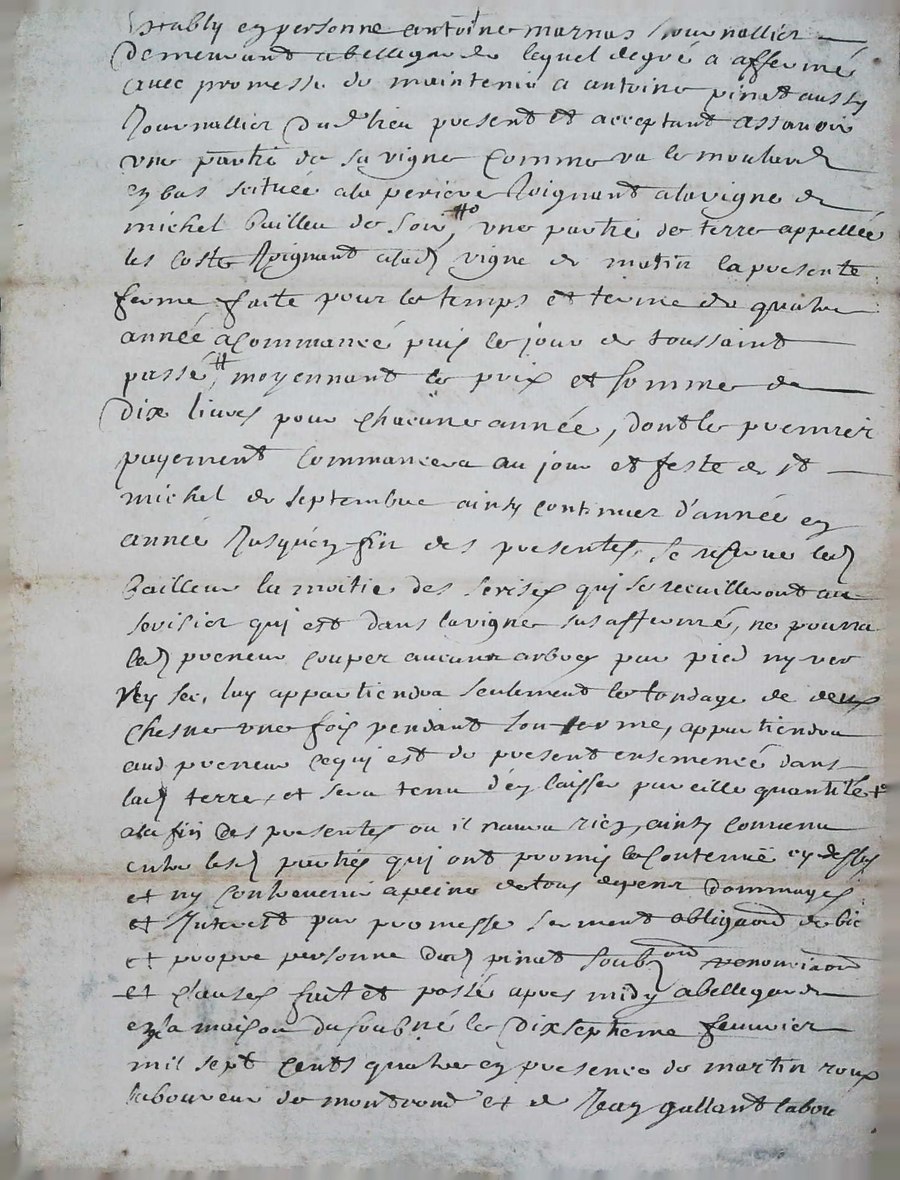 Estably en personne antoine marnas Journallier
demeurant abellegarde lequel degré a affermé
avec promesse de maintenir a antoine pinat aussy
Journallier dud lieu present et acceptant assavoir
une partie de sa vigne comme va le
en bas scituée ala periere Joignant alavigne de
michel bailleu de soir, une partie de terre appellée
les coste Joignant alad vigne de matin la presente
ferme faite pour le temps et terme de quatre
année acommancé puis le jour de toussaint
passé, moyennant le prix et somme de
dix livres pour chacune année, dont le premier
payement commancera au jour et feste de st
michel de septembre ainsy continuer d'année en
année Jusqu'en fin des presentes, se reserve led
bailleur la moitie des serises qui se recuilleront au
serisier qui est dans lavigne sus affermé, ne pourra
led preneur couper aucun arbres par pied ny ver
ny sec, luy appartiendra seulement le tondage de deux
chesne une fois pendant son terme, appartiendra
aud preneur ce qui est de present ensemencé dans
lad terre, et sera tenu d'en laisser pareille quantité
ala fin des presentes ou il naura rien, ainsy convenu
entre lesd parties qui ont promis le contenu cy dessus
et ny contrevenir apeine de tous depens dommages
et Interest par promesse serment obligaon de bie
et propre personne dud pinat soubzon renonciaon
et clauses fait et passé apres midy abellegarde
en la maison du soubné le dixseptieme feuvrier
mil sept cents quatre en presence de martin roux
laboureur de montrond et de Jean gallant labou